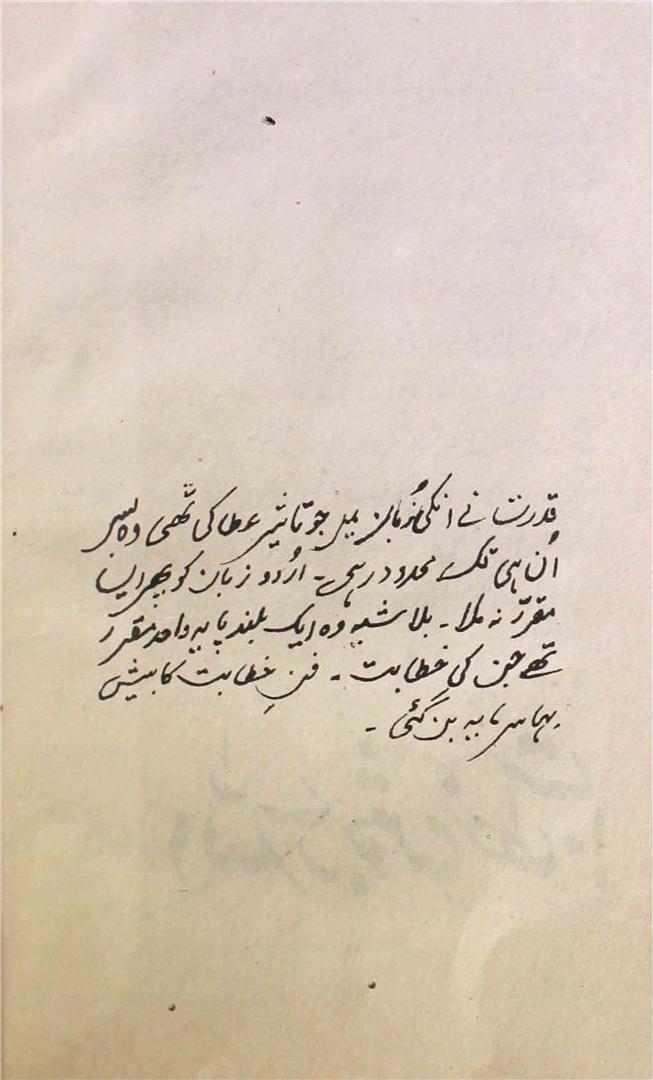 قدرت نے انکی زُبان میں جو تاثیر عطا کی تھی وہ بس
اُن ہی تک محدود رہی۔ اُردو زبان کو پھر ایسا
مقرّر نہ ملا۔ بلا شبہ وہ ایک بلند پایہ واحد مقرر
تھے جن کی خطابت۔ فنِ خطابت کا بیش
بہا سرمایہ بن گئی۔